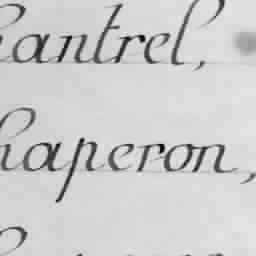 hantrel,
haperon,